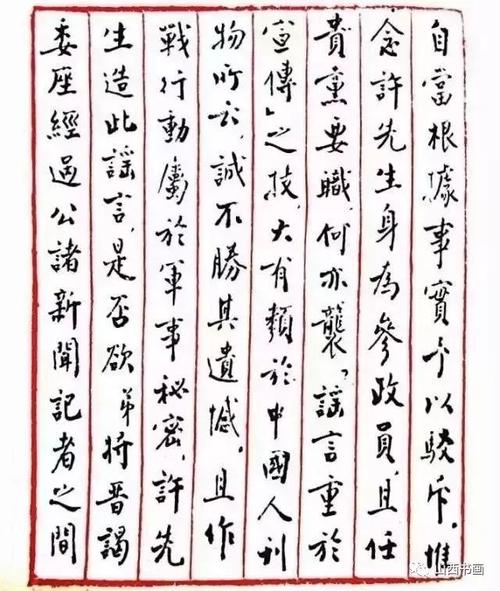 自當根據事實予以駁斥。惟
念許先生身為參政員，且任
貴黨要職，何亦襲「謠言重於
宣傳」之技，大有類於中國人刊
物所云，誠不勝其遺憾，且作
戰行動屬於軍事秘密，許先
生造此謠言，是否欲弟將晉謁
委座經過公諸新聞記者之間
山西书画